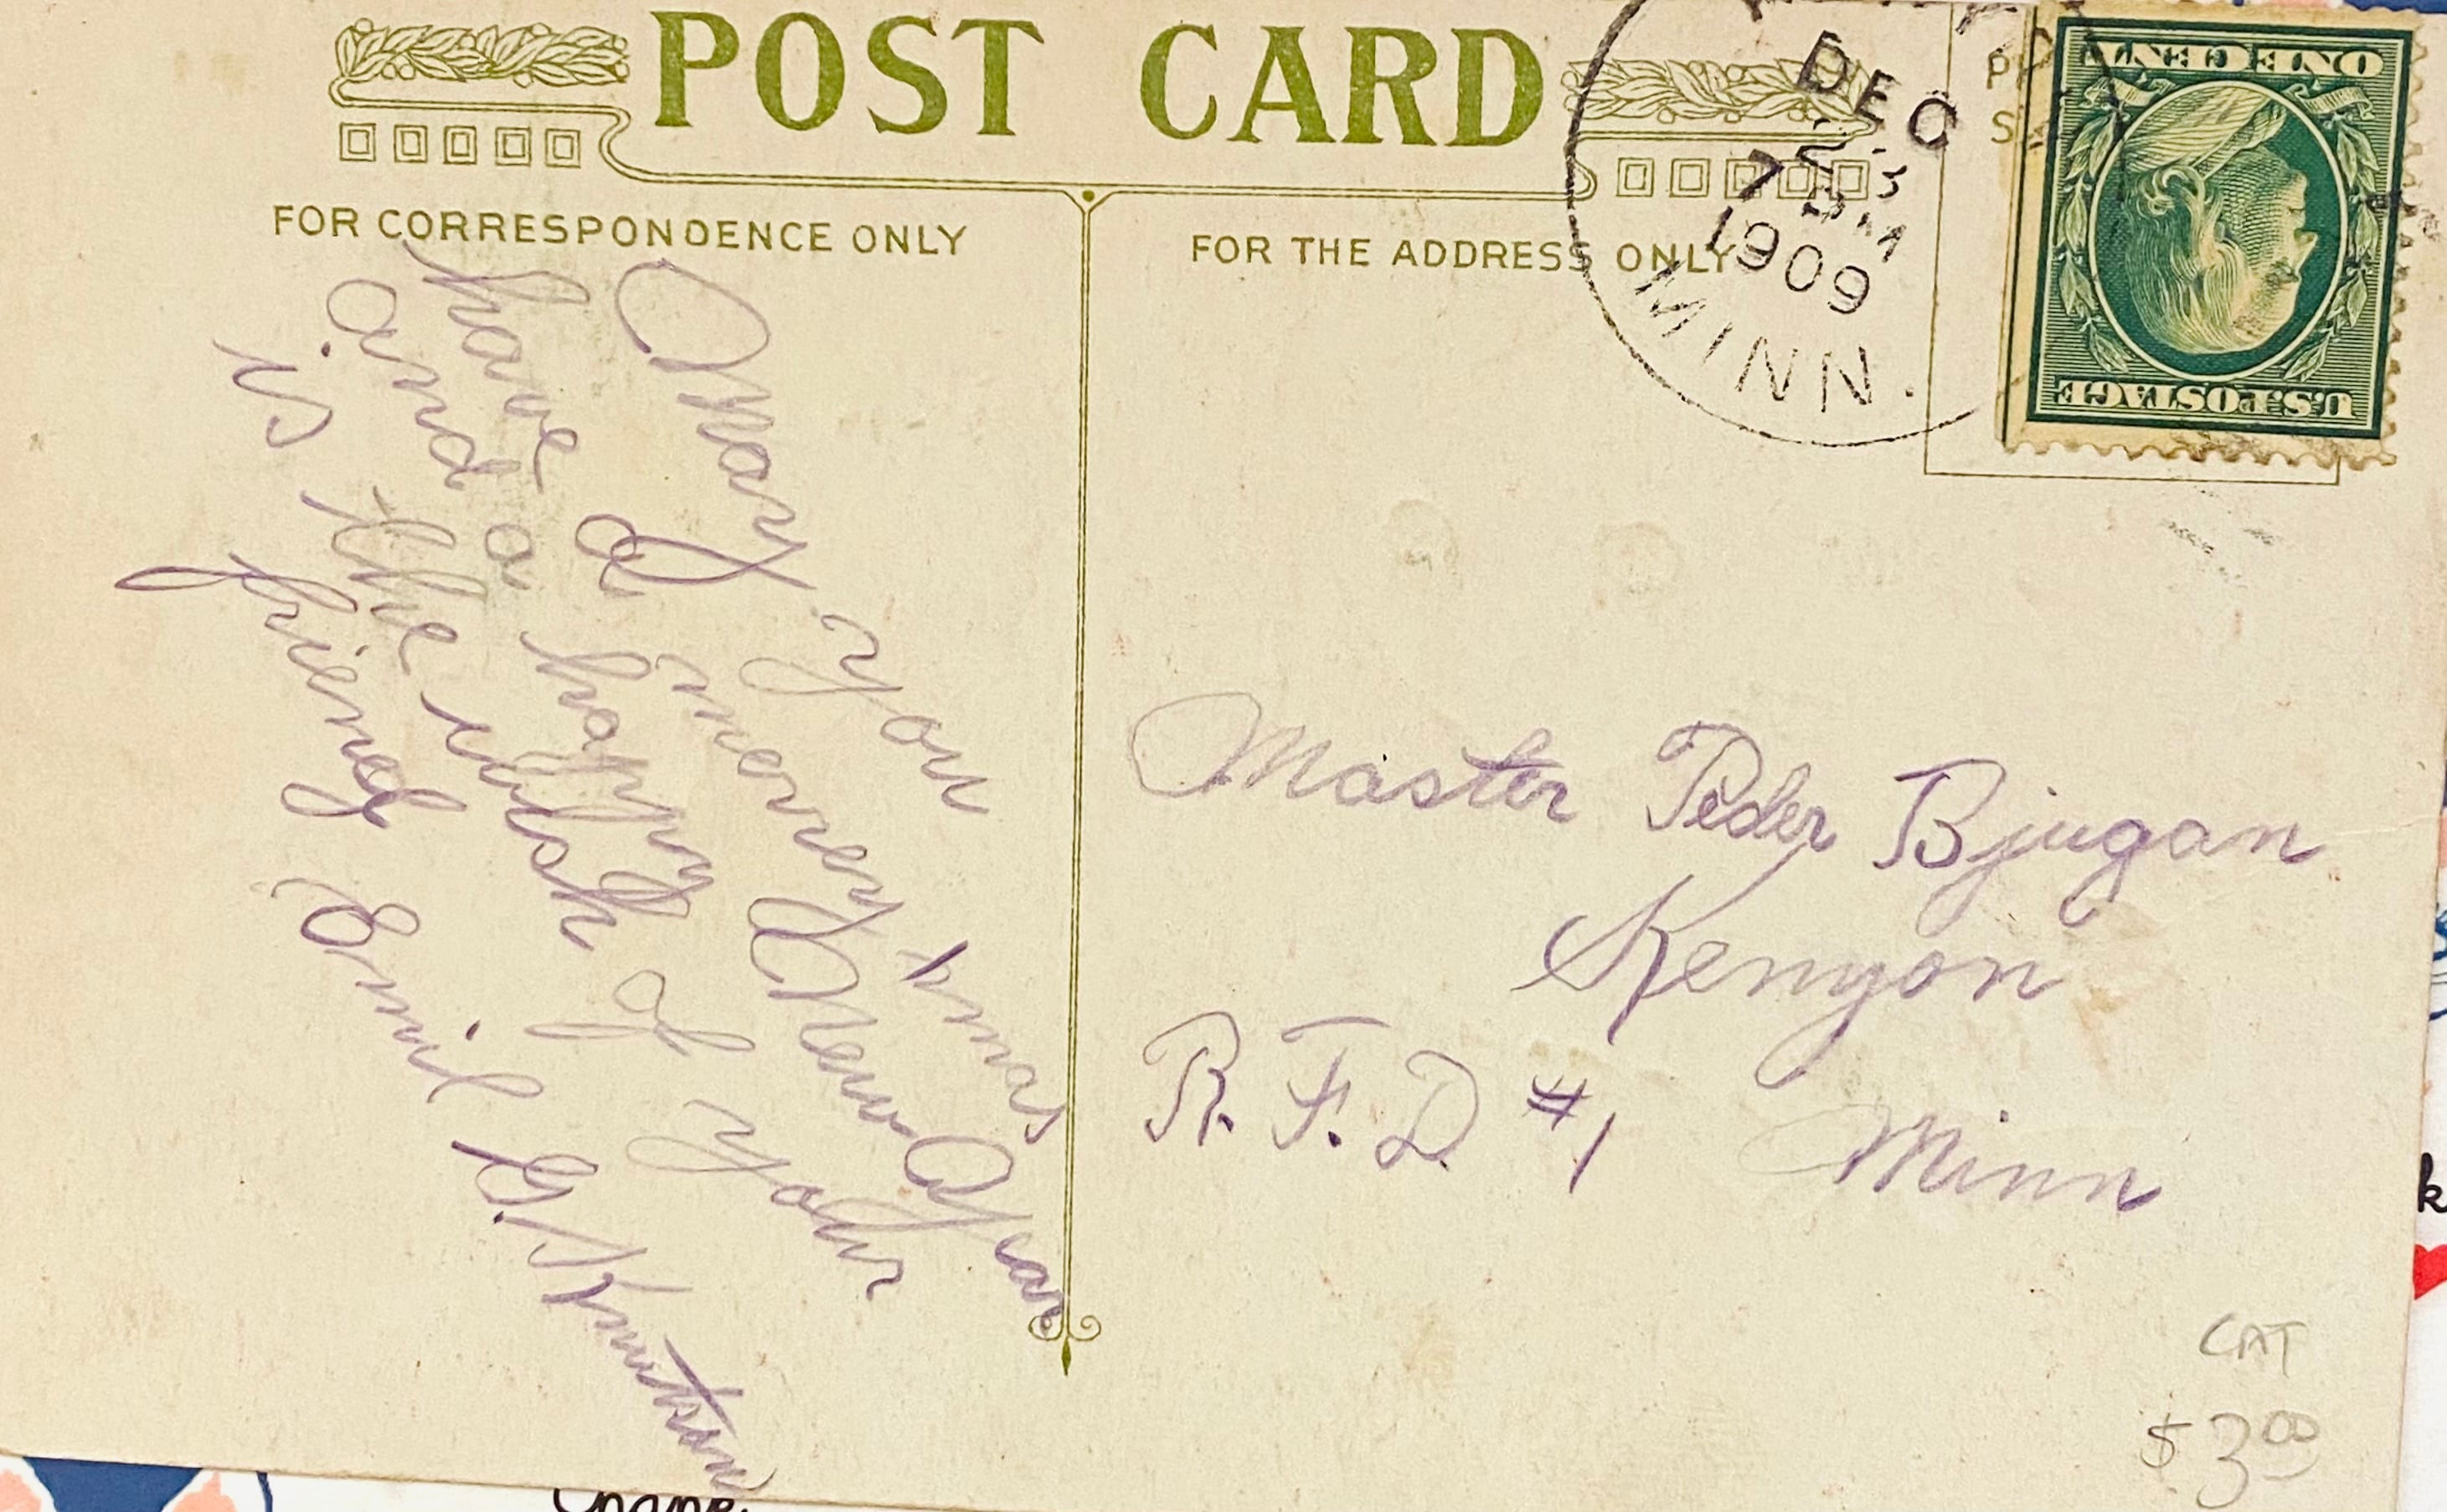 POST CARD
FOR CORRESPONDENCE ONLY
May you
have a merry Xmas
and a happy New Year
is the wish of your
friend Emil G. Knutson
FOR THE ADDRESS ONLY
DEC
23
7 PM
1909
MINN.
ONE CENT
U.S. POSTAGE
Master Peder Bjugan
Kenyon
R. F. D #1 Minn
CAT
$3.00
k